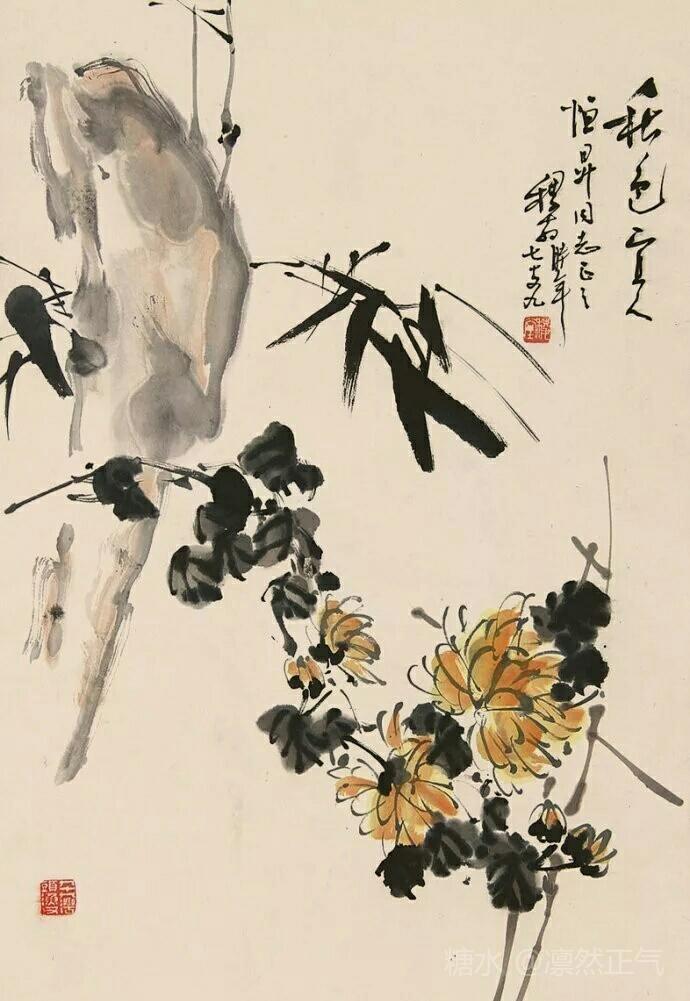 秋色宜人
恒昇同志正之
時年
七十又九
糖水 @凛然正气